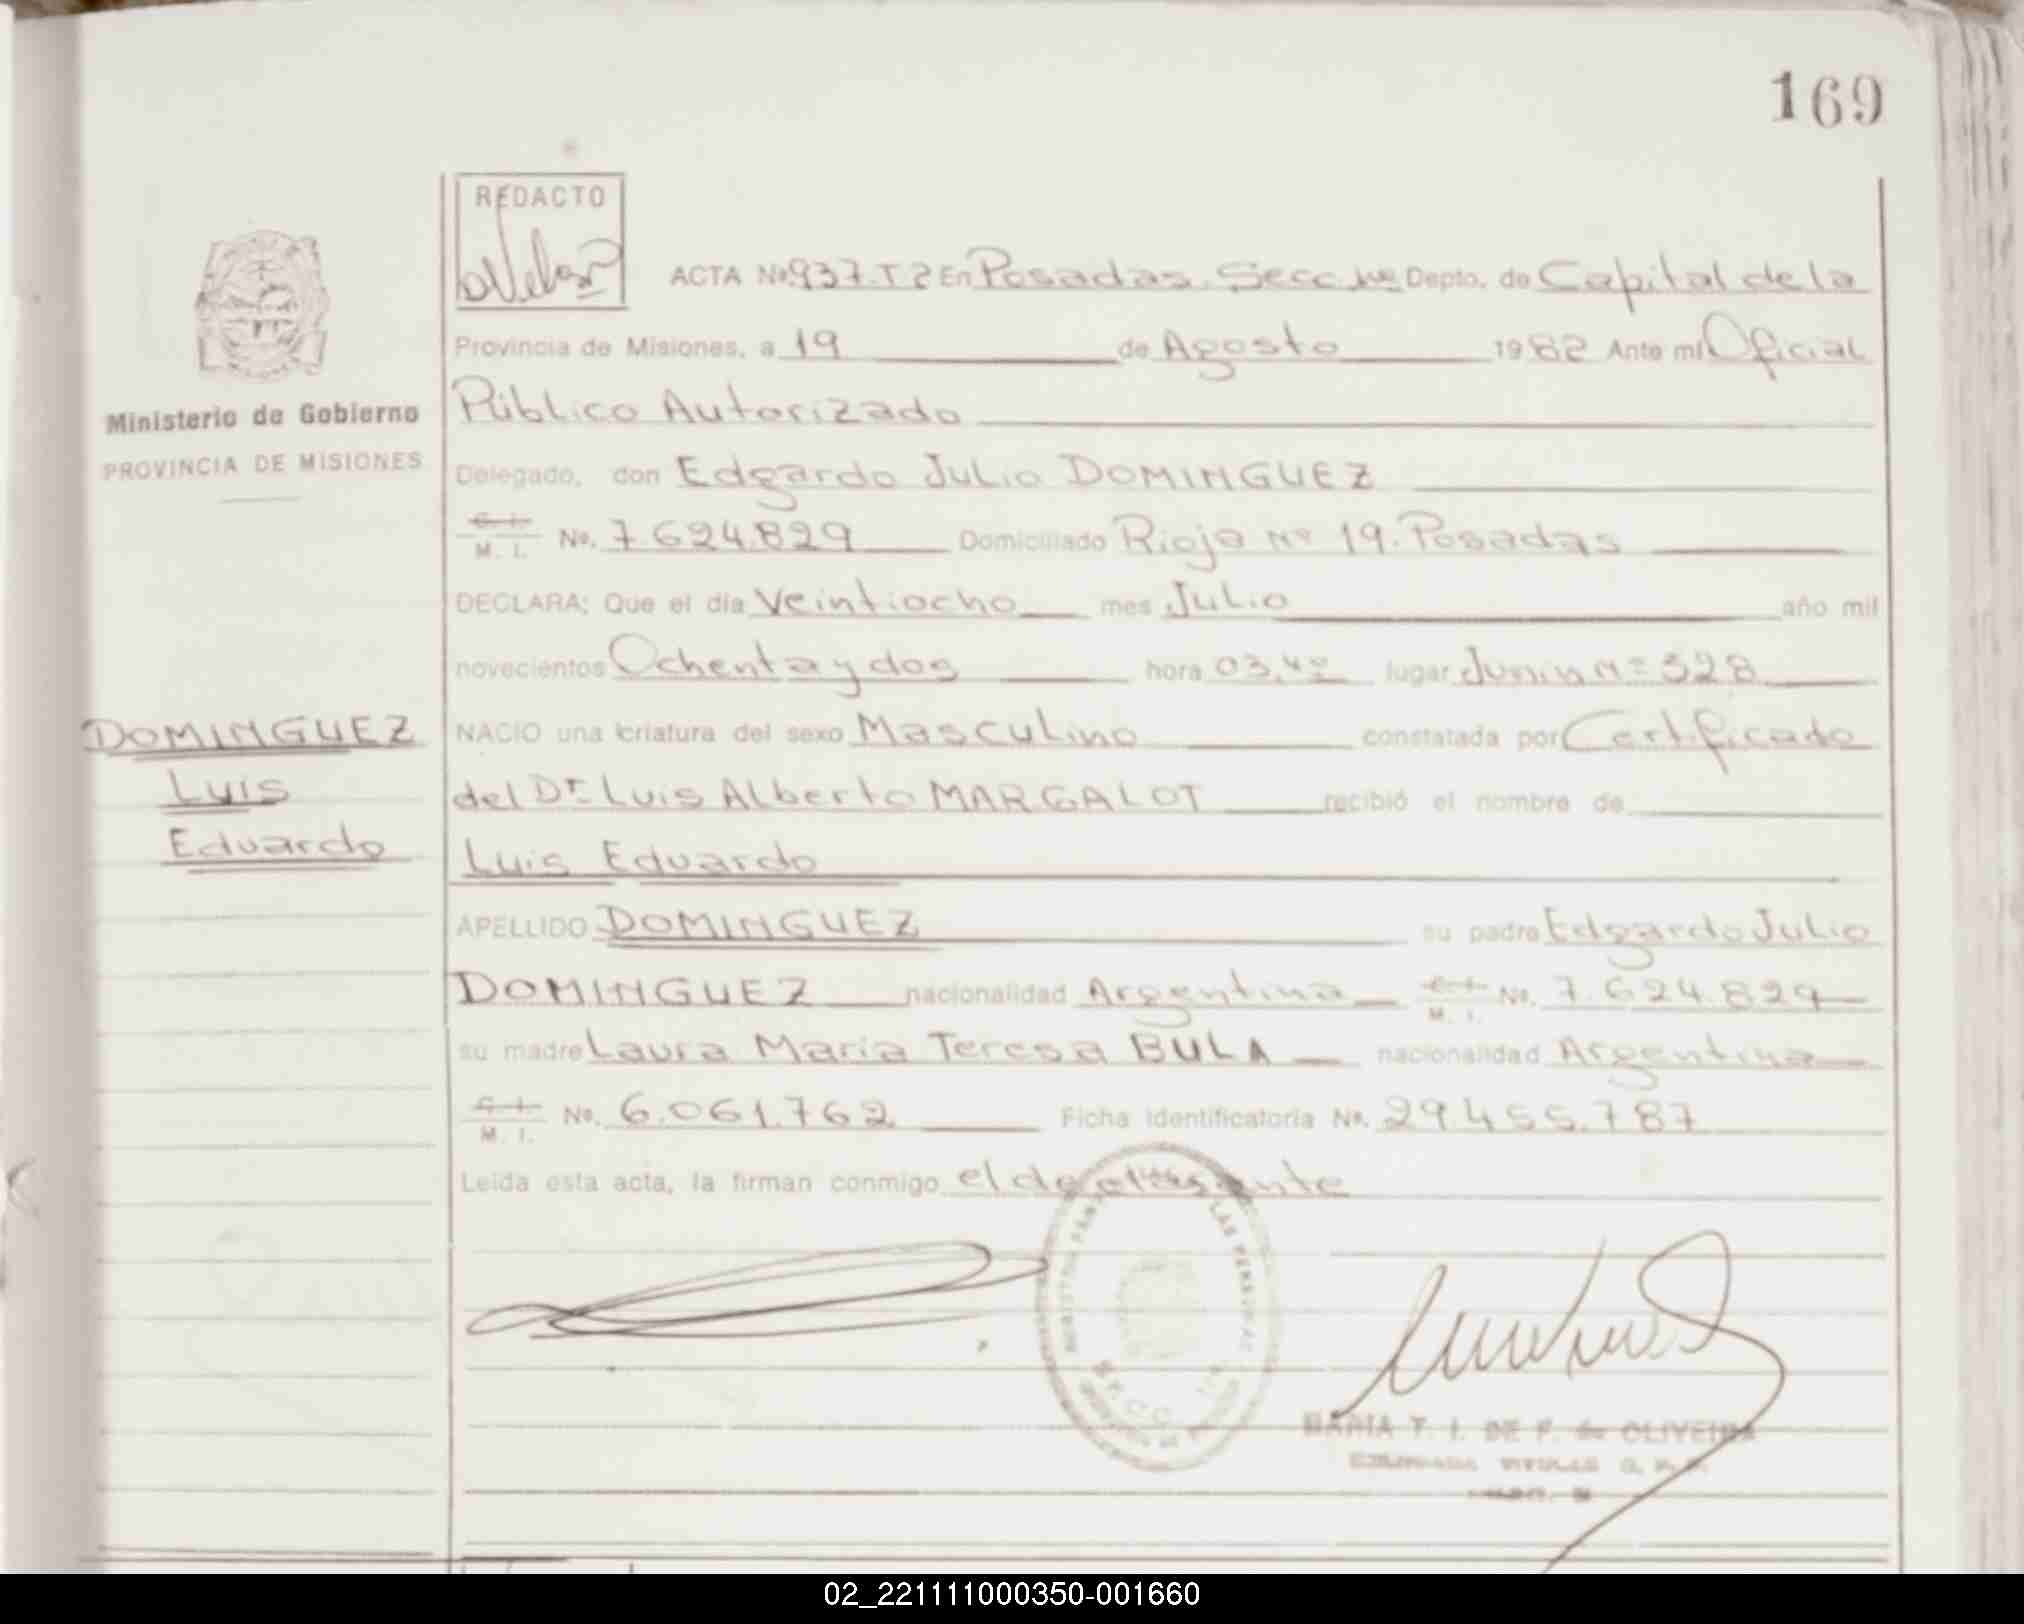 169
REDACTO
ACTA No. 937. T 2 En Posadas. Secc. Depto. de Capital de la
Provincia de Misiones, a 19 de Agosto 1982 Ante mí Oficial
Ministerio de Gobierno
PROVINCIA DE MISIONES
Público Autorizado
Delegado, don Edgardo Julio DOMINGUEZ
C. I. M. I. No. 7.624.829 Domiciliado Rioja Nº 19. Posadas
DECLARA: Que el día Veintiocho mes Julio año mil
novecientos Ochenta y dos hora 03,40 lugar Junin Nº 328
DOMINGUEZ
Luis
Eduardo
NACIO una criatura del sexo Masculino constatada por Certificado
del Dr. Luis Alberto MARGALOT recibió el nombre de
Luis Eduardo
APELLIDO DOMINGUEZ su padre Edgardo Julio
DOMINGUEZ nacionalidad Argentina C. I. M. I. No. 7.624.829
su madre Laura Maria Teresa BULA nacionalidad Argentina
C. I. M. I. No. 6.061.762 Ficha Identificatoria No. 29.455.787
Leída esta acta, la firman conmigo el declarante
LAS PERSONAS
MARIA T. I. DE F. de OLIVEIRA
02_221111000350-001660